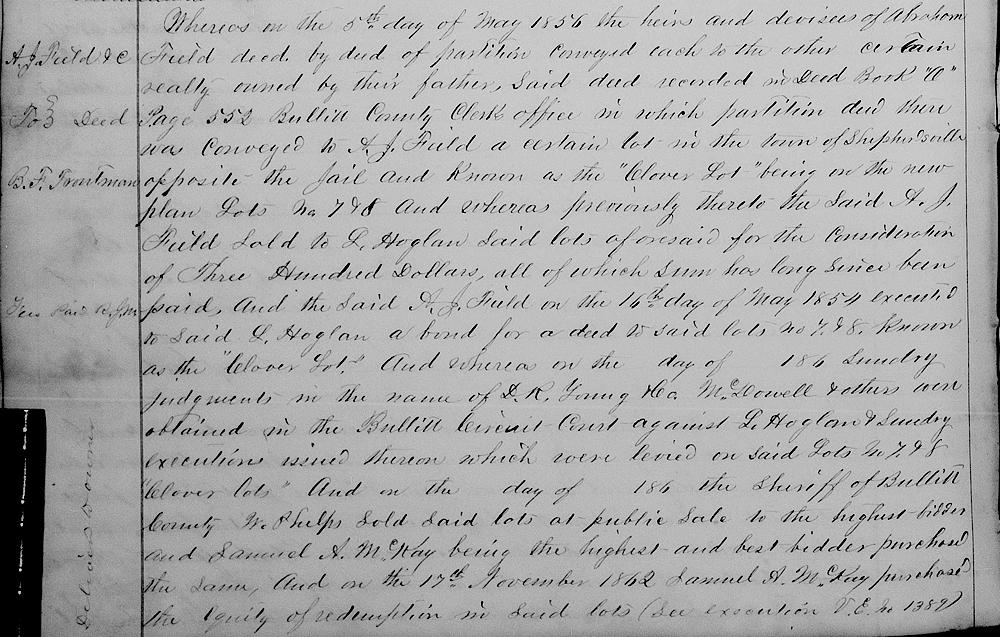 Whereas on the 5th day of May 1856 the heirs and devisees of Abraham
A. J. Field &c
Field deed. by deed of partition conveyed each to the other certain
realty owned by their father, Said deed recorded in Deed Book "O"
To } Deed
Page 552 Bullitt County Clerks office in which partition deed there
was conveyed to A. J. Field a certain lot in the town of Shepherdsville
B. F. Troutman
opposite the Jail and Known as the "Clover Lot" being on the new
plan Lots No 7 & 8 And whereas previously thereto the said A. J.
Field sold to L. Hoglan said lots aforesaid for the Consideration
of Three Hundred Dollars, all of which sum has long since been
paid, And the said A. J. Field on the 16th day of May 1854 executed
to said L. Hoglan a bond for a deed to said lots no 7. & 8. Known
as the "Clover Lot." And whereas on the day of 186 Sundry
judgments in the name of D. R. Young &Co. McDowell & others were
obtained in the Bullitt Circuit Court against L. Hoglan & Sundry
executions issued thereon which were levied on said Lots No 7. & 8
"Clover lots" And on the day of 186 the Sheriff of Bullitt
County W. Phelps sold said lots at public sale to the highest bidder
and Samuel A. McKay being the highest and best bidder purchased
the same, And on the 17th November 1862 Samuel A. McKay purchased
the Equity of redemption in said lots (See execution V. E. No 1389)
Delivered to